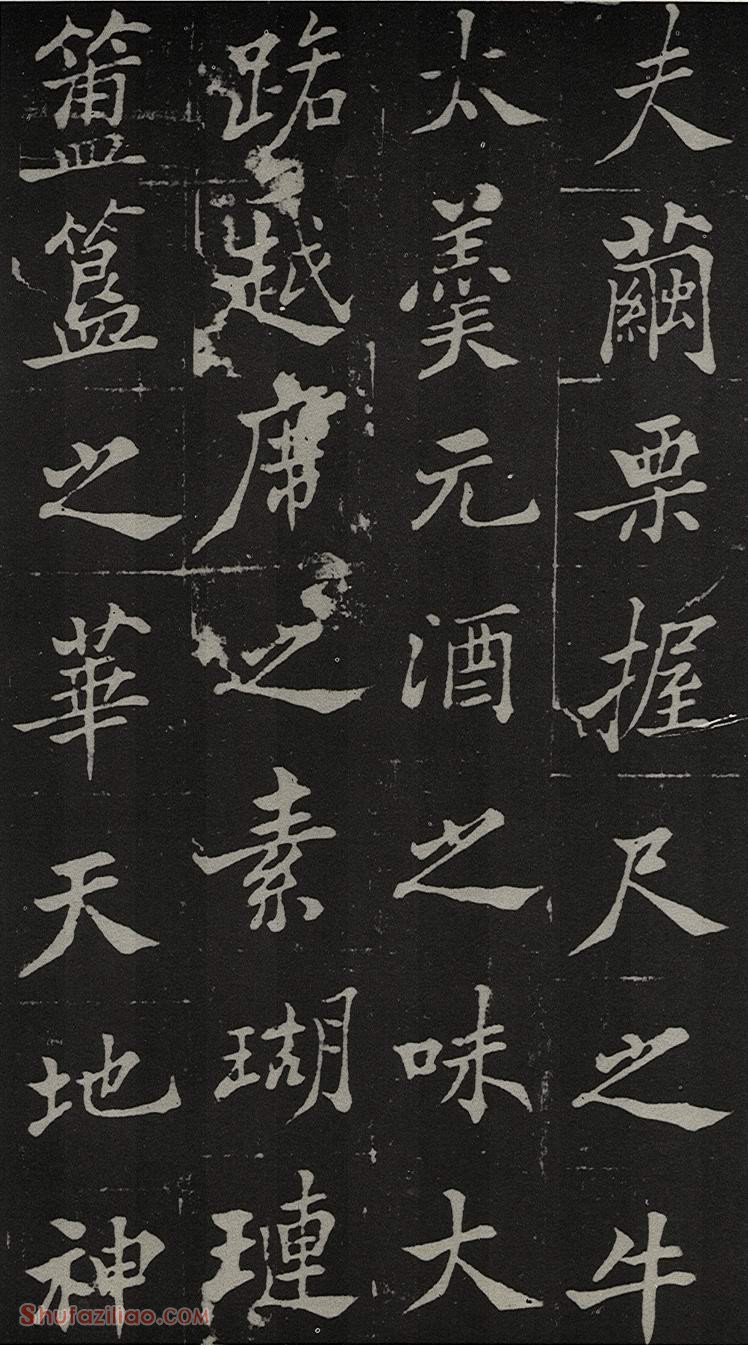 夫繭栗握尺之牛
太羹元酒之味大
路越席之素瑚璉
簠簋之華天地神
Shufaziliao.COM